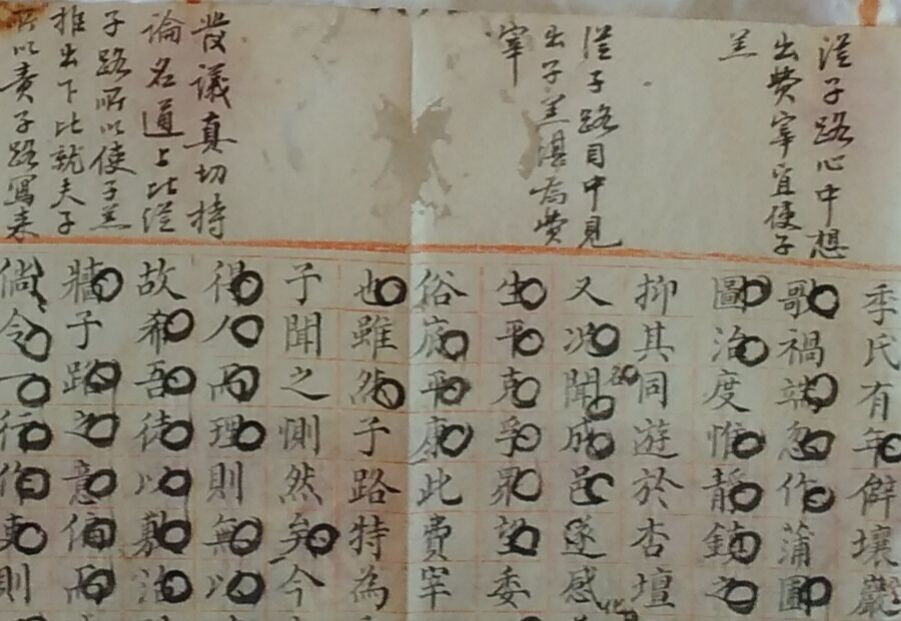 從子路心中想
出費宰宜使子
羔
從子路目中見
出子羔堪為費
宰
發議真切持
論名通上比從
子路所以使子羔
推出下比就夫子
所以責子路寫来
季氏有年僻壤嚴
歌禍端忽作蒲圖
圖治度惟靜鎮之
抑其同遊於杏壇
又況聞成邑遂感
生平克孚眾望委
俗宸平康此費宰
也雖然子路特為
子聞之惻然矣今
得人而理則無以
故希吾徒以敷治
牆子路之意偏而
倘令一行作吏則